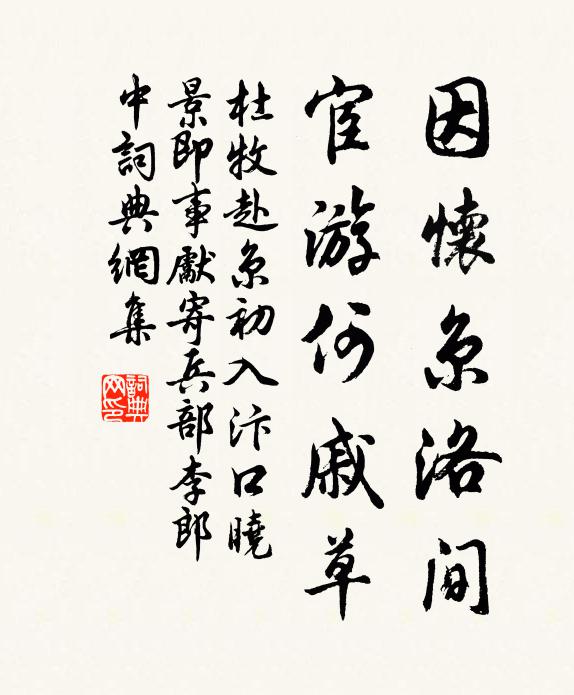 因懷京洛間
宦游何戚草
杜牧赴京初入汴口曉
景即事獻寄兵部李郎
中詞典網集
詞典网印